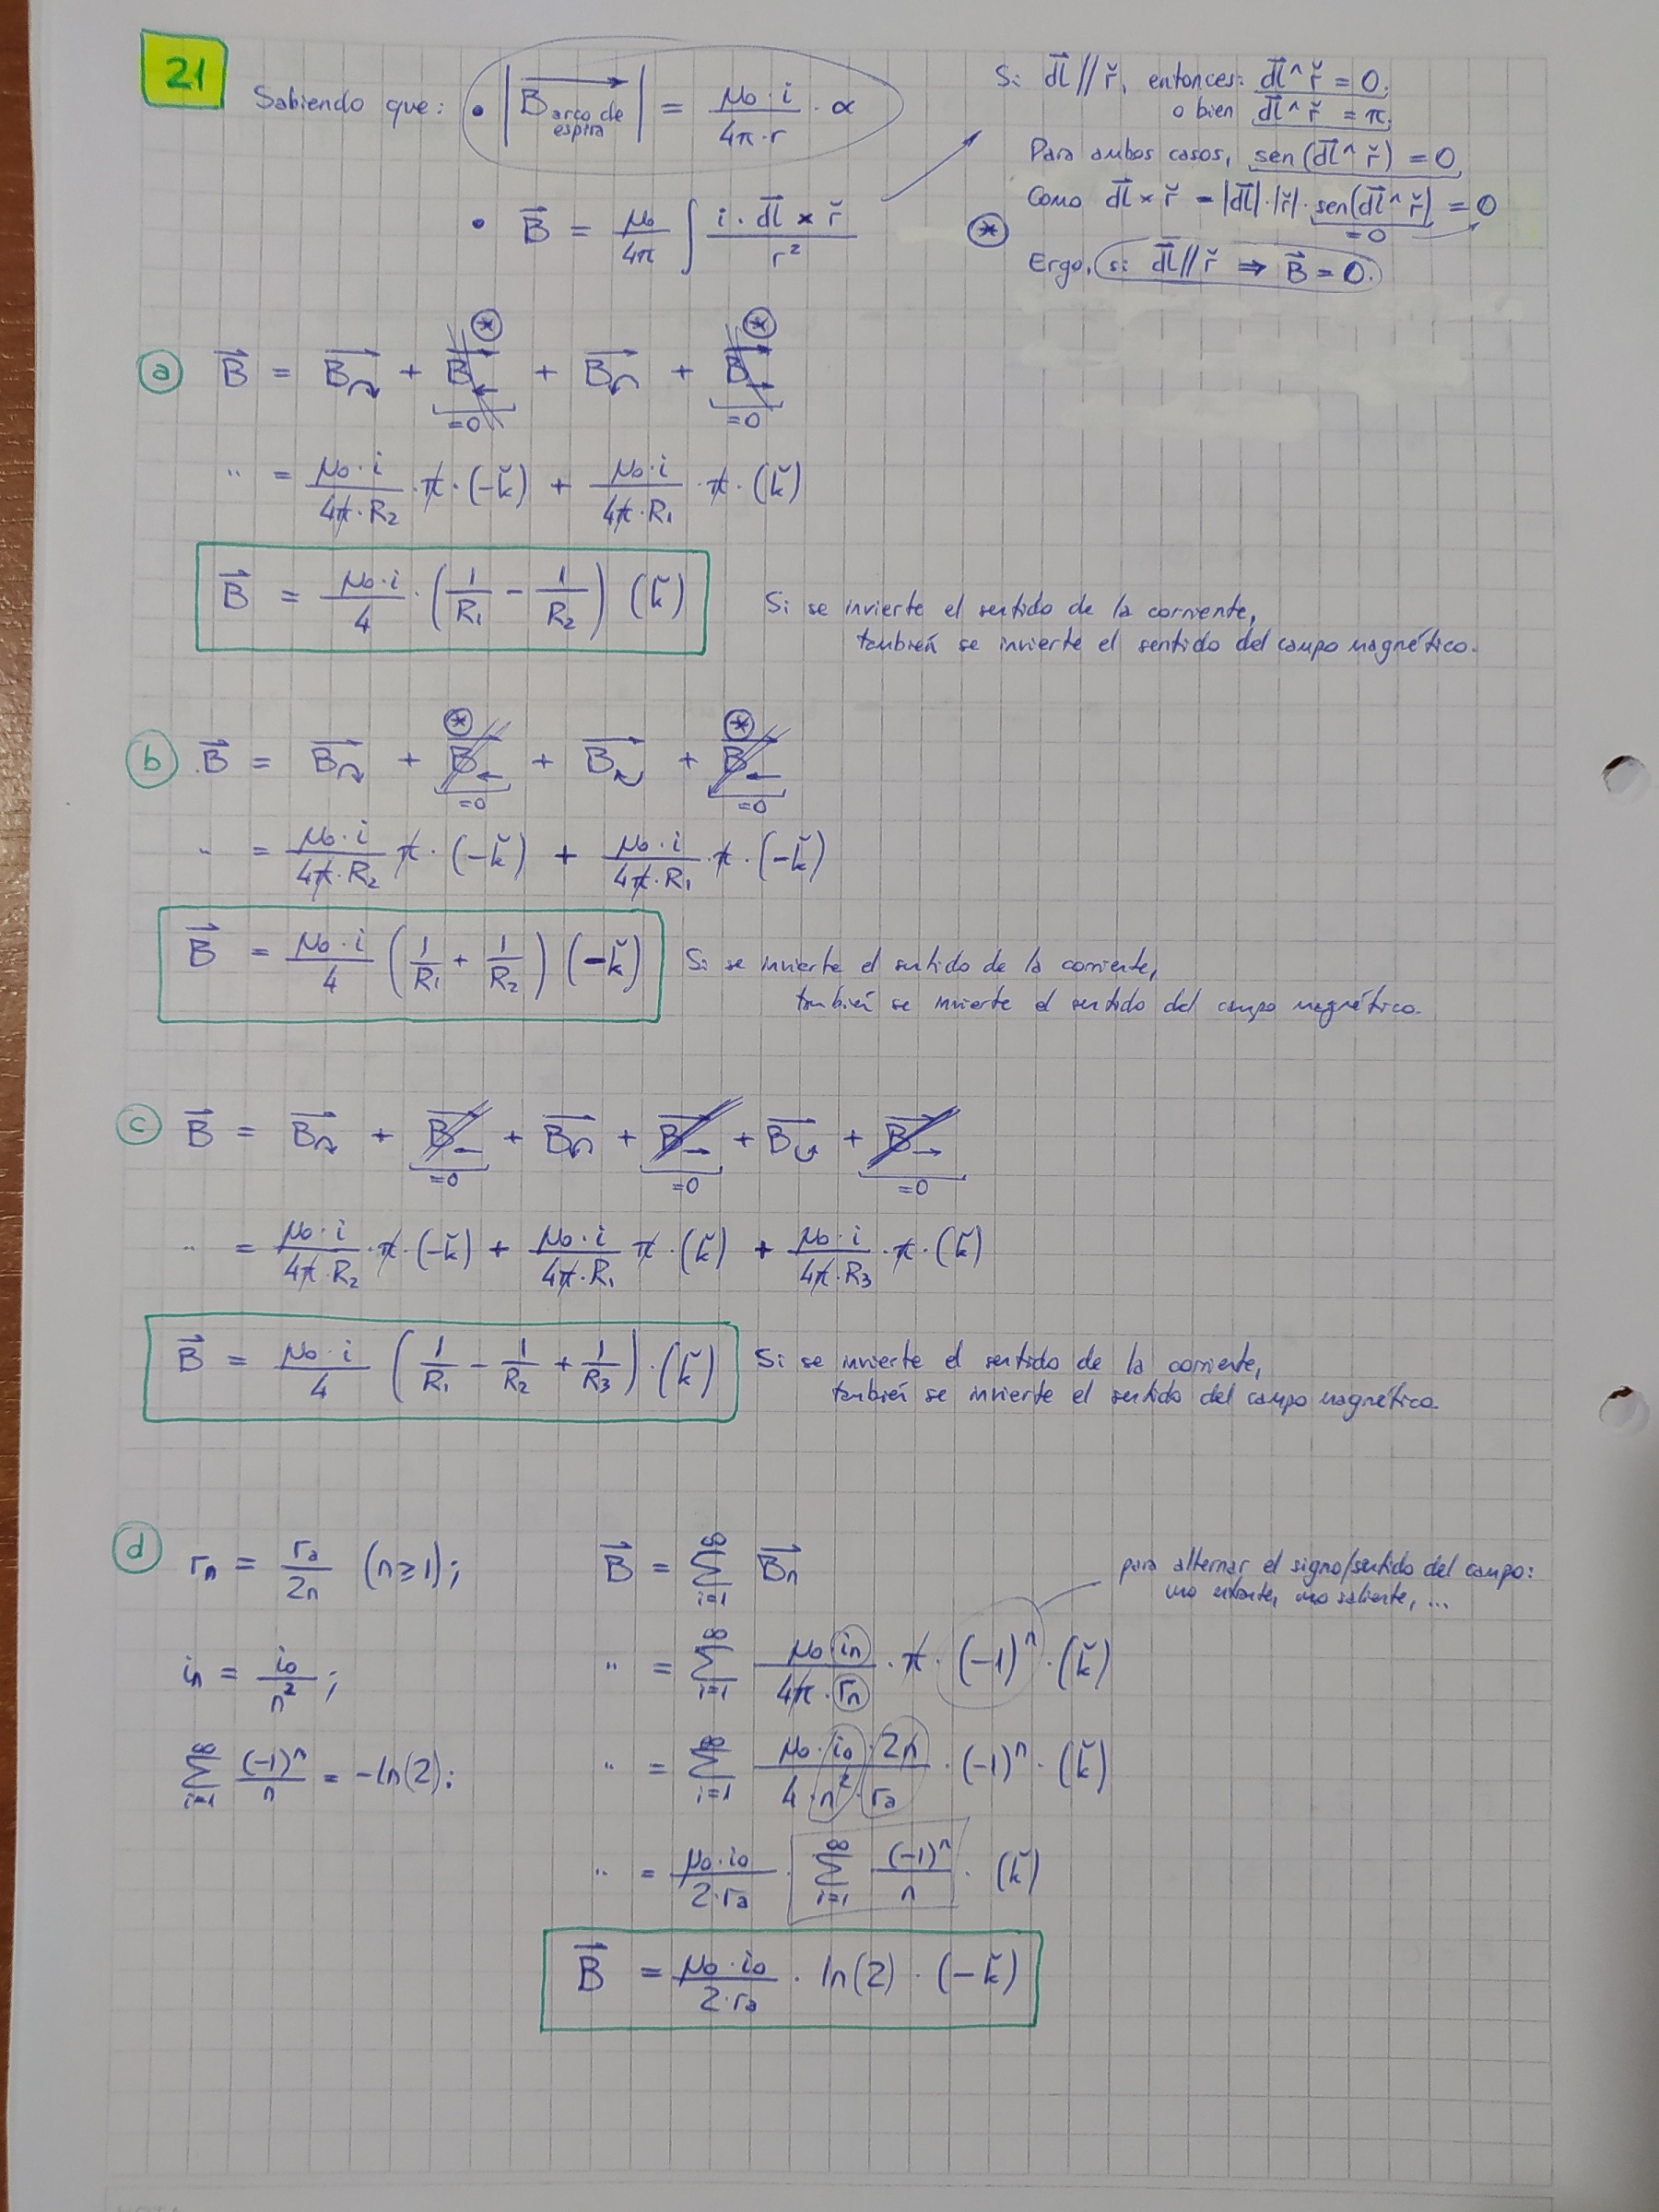 21
Sabiendo que: • |B⃗ arco de espira| = μ₀·i / 4π·r · α
• B⃗ = μ₀/4π ∫ i·d⃗l × ř / r²
Si d⃗l // ř, entonces: d⃗l ^ ř = 0.
o bien d⃗l ^ ř = π.
Para ambos casos, sen(d⃗l ^ ř) = 0
Como d⃗l × ř = |d⃗l|·|ř|·sen(d⃗l ^ ř) = 0
= 0
(*) Ergo, si d⃗l // ř ⇒ B⃗ = 0.
(*) (*)
a B⃗ = B⃗↷ + B⃗← + B⃗↶ + B⃗→
=0 =0
" = μ₀·i / 4π·R₂ · π · (-ǩ) + μ₀·i / 4π·R₁ · π · (ǩ)
B⃗ = μ₀·i / 4 · (1/R₁ - 1/R₂) (ǩ)
Si se invierte el sentido de la corriente,
también se invierte el sentido del campo magnético.
(*) (*)
b B⃗ = B⃗↷ + B⃗← + B⃗⤾ + B⃗←
=0 =0
" = μ₀·i / 4π·R₂ π · (-ǩ) + μ₀·i / 4π·R₁ · π · (-ǩ)
B⃗ = μ₀·i / 4 (1/R₁ + 1/R₂) (-ǩ)
Si se invierte el sentido de la corriente,
también se invierte el sentido del campo magnético.
c B⃗ = B⃗↷ + B⃗← + B⃗↶ + B⃗→ + B⃗⤿ + B⃗→
=0 =0 =0
" = μ₀·i / 4π·R₂ · π · (-ǩ) + μ₀·i / 4π·R₁ π · (ǩ) + μ₀·i / 4π·R₃ · π · (ǩ)
B⃗ = μ₀·i / 4 (1/R₁ - 1/R₂ + 1/R₃) · (ǩ)
Si se invierte el sentido de la corriente,
también se invierte el sentido del campo magnético.
d rₙ = rₐ / 2n (n ≥ 1);
iₙ = i₀ / n²;
∑ i=1 ∞ (-1)ⁿ / n = -ln(2);
B⃗ = ∑ i=1 ∞ B⃗ₙ
para alternar el signo/sentido del campo:
uno entrante, uno saliente, ...
" = ∑ i=1 ∞ μ₀·iₙ / 4π·rₙ · π · (-1)ⁿ · (ǩ)
" = ∑ i=1 ∞ μ₀·i₀·2n / 4·n²·rₐ · (-1)ⁿ · (ǩ)
" = μ₀·i₀ / 2·rₐ · ∑ i=1 ∞ (-1)ⁿ / n · (ǩ)
B⃗ = μ₀·i₀ / 2·rₐ · ln(2) · (-ǩ)